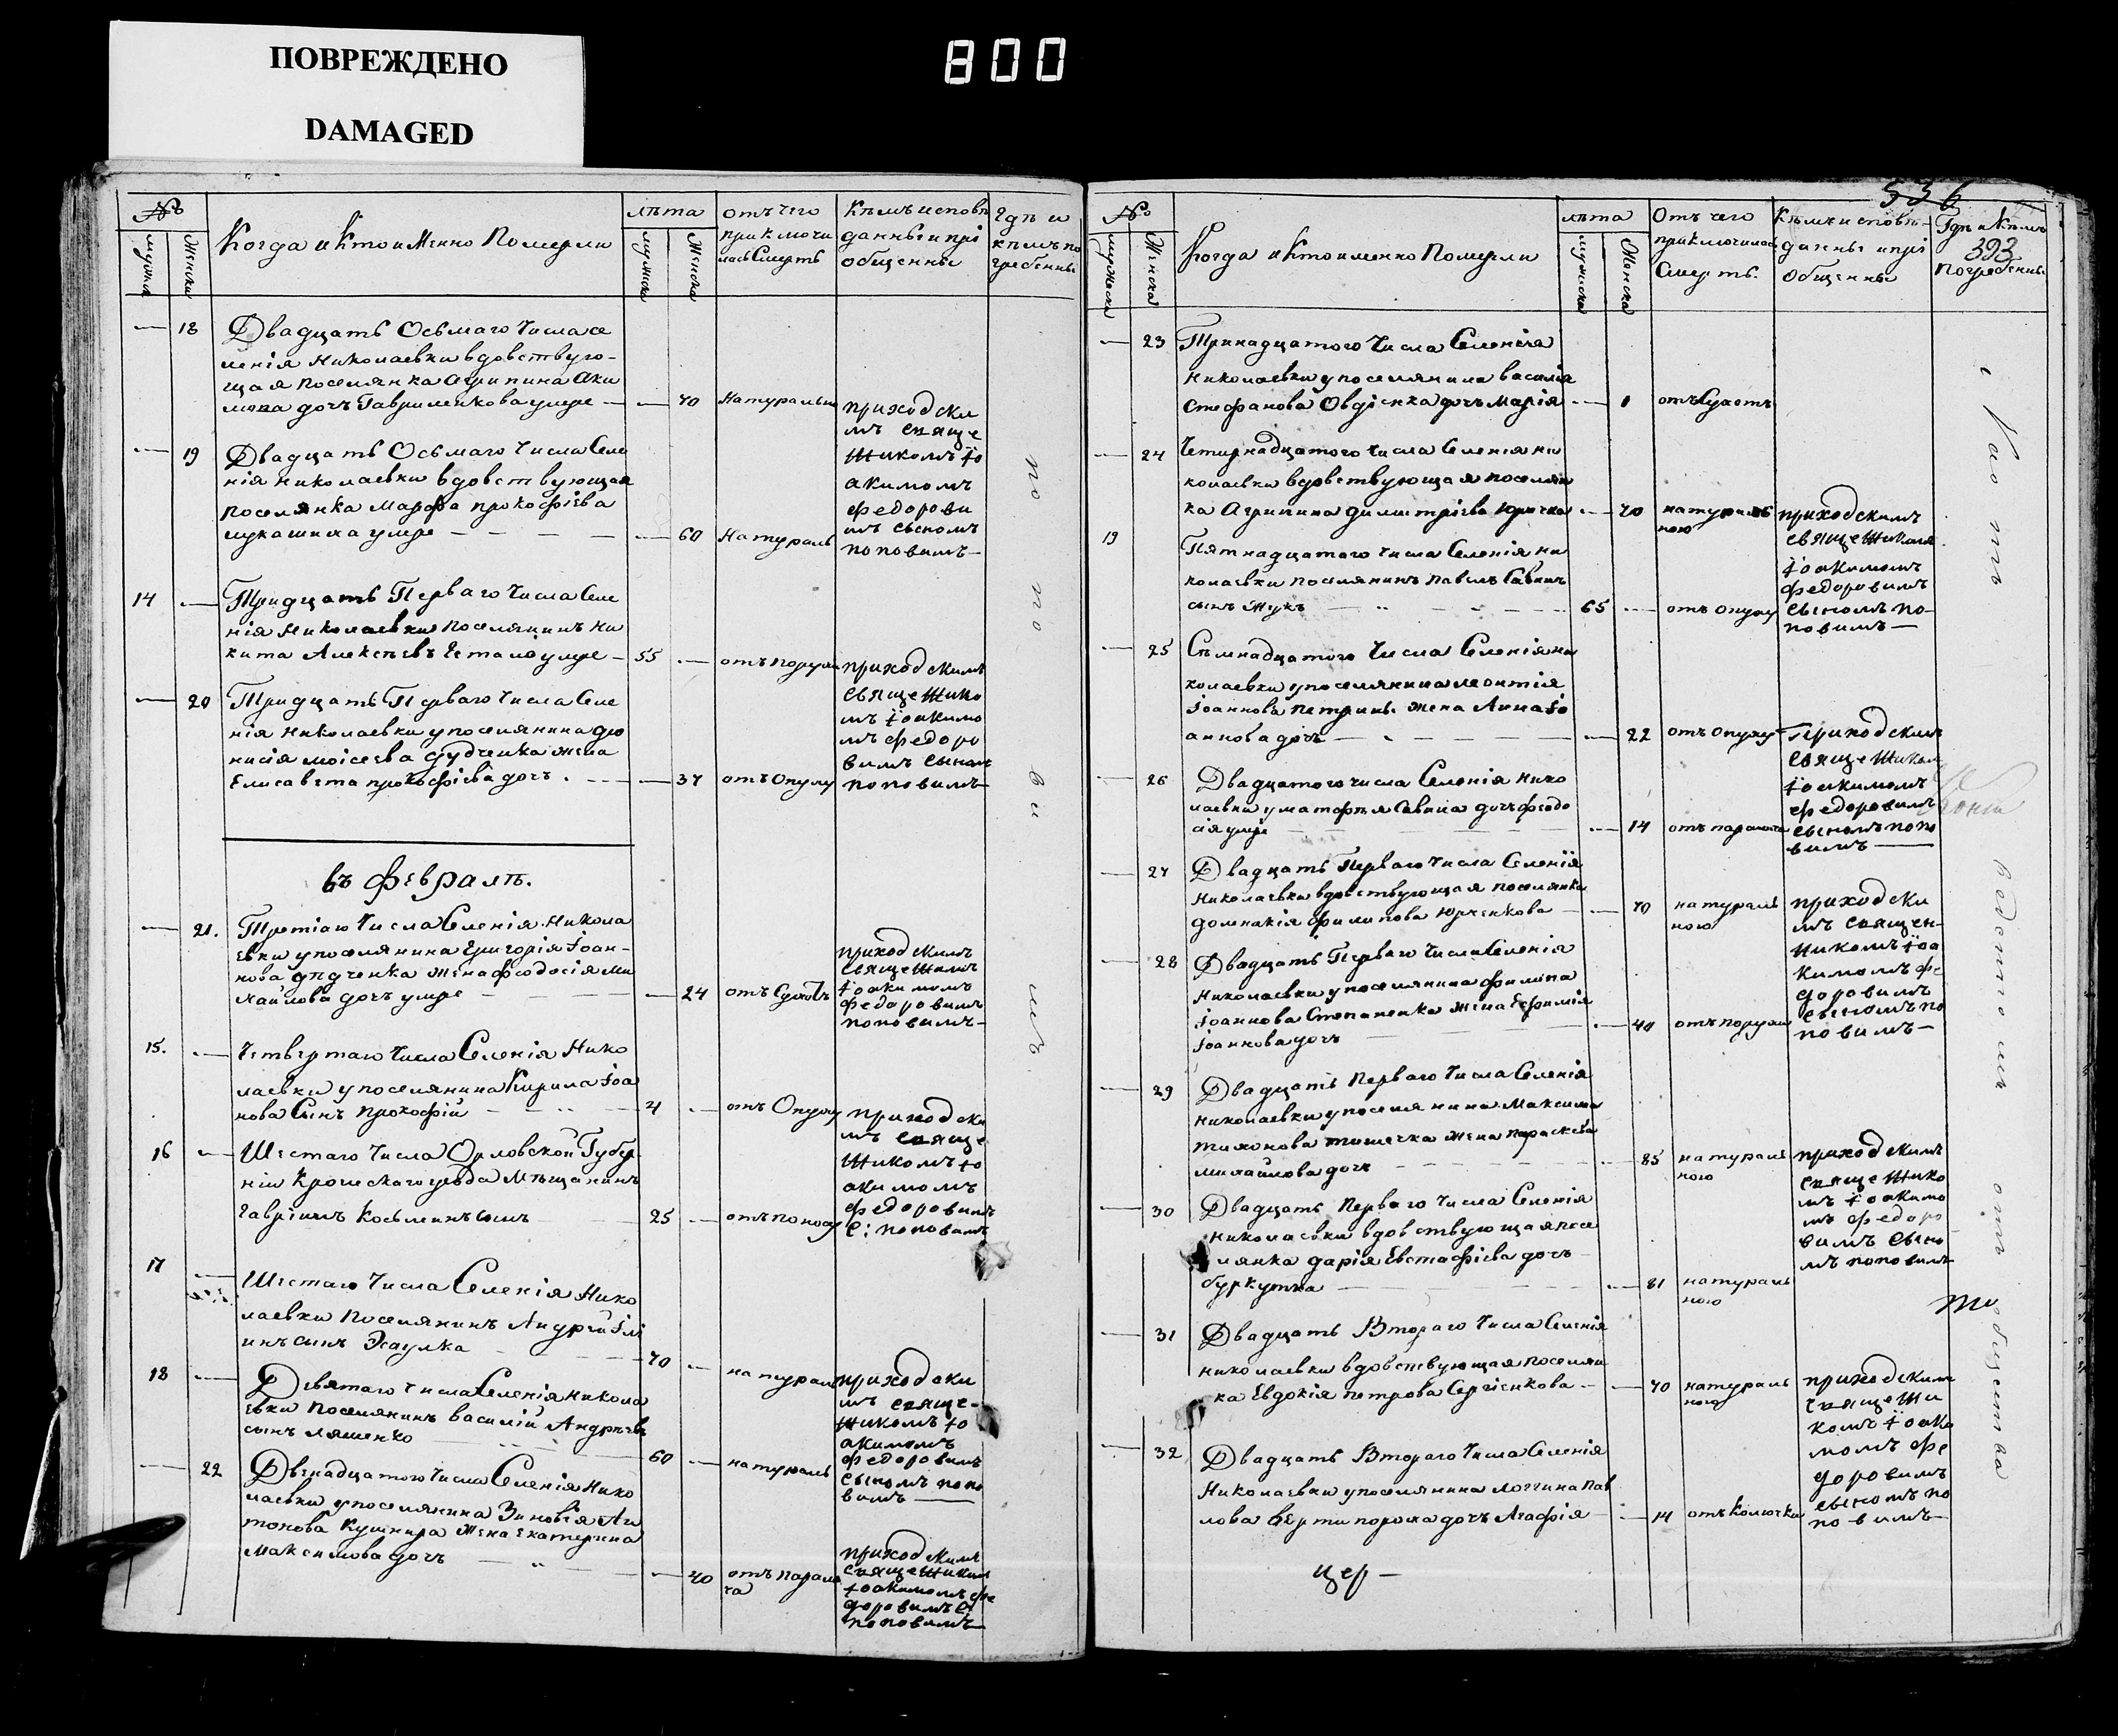 ПОВРЕЖДЕНО
DAMAGED
800
№
мужска
Женска
Когда и Кто имянно Померли
лѣта
мужска
Женска
отъ чего
приключи
лась Смерть
Кѣмъ исповѣ
данны и прі
общенны
Гдѣ и
кѣмъ по
гребенны
18
Двадцать Осьмаго Числа се
ленія Николаевки вдовствую-
щая поселянка Агрипина Аки
мова дочъ Гавриленкова умре
70
Натурально
приходски
мъ свяще
нникомъ Іо
акимомъ
федорови
мъ сыномъ
поповымъ
19
Двадцать Осьмаго Числа Селе
нія Николаевки вдовствующая
поселянка Марфа прокофіева
лукашиха умре
60
Натураль
14
Тридцать Перваго Числа Селе
нія Николаевки поселянинъ Ни
кита Алексѣевъ умре
55
приходскимъ
священнико
мъ Іоакимо
мъ федоро
вимъ сыномъ
поповимъ
20
Тридцать Перваго Числа Селе
нія Николаевки у поселянина дио
нисія моісеева дудченка жена
Елисавета прокофіева дочъ
37
отъ Опуху
въ февралѣ.
21.
Третіаго Числа Селенія Никола
евки у поселянина Григорія Іоан-
нова дудченка жена феодосія ми
хайлова дочъ умре
24
отъ Сухотъ
приходскимъ
священикомъ
Іоакимомъ
федоровимъ
поповимъ
15.
Четвертаго Числа Селенія Нико
лаевки у поселянина Кирила Іоа
нова Сынъ прокофій
отъ Опуху
приходски
мъ свяще
нникомъ Іо
акимомъ
федоровимъ
С: поповимъ
16
Шестаго Числа Орловской Губер
ніи Кромскаго уезда Мѣщанинъ
Гавріилъ Косьминъ сынъ
25
отъ поносу
17
Шестаго Числа Селенія Нико
лаевки Поселянинъ Андрей Ілі
инъ сынъ Эсаулка
70
натураль
приходски
мъ свяще-
нникомъ Іо
акимомъ
федоровимъ
сыномъ попо
вимъ
18
Девятаго Числа Селенія Никола
евки Поселянинъ василій Андрѣевъ
сынъ ляшенко
60
натураль
22
Двенадцатого Числа Селенія Нико
лаевки у поселянина Зиновія Ан
тонова Кушнира Жена Екатерина
Максимова дочъ
40
отъ парали
ча
приходскимъ
священикомъ
Іоакимомъ фе
доровимъ С:
поповимъ
536
393
№
мужеска
Женска
Когда и Кто именно Померли
лѣта
мужска
Женска
Отъ чего
приключилась
Смерть.
Кѣмъ исповѣ-
данны и прі
общенны
Гдѣ и Кѣмъ
погребенны
23
Тринадцатого Числа Селенія
Николаевки у поселянина василія
Стефанова Овдіенка дочъ марія
1
отъ Сухотъ
24
Четирнадцатого Числа Селенія Ни
колаевки вдовствующая поселян
ка Агрипина димитріева Юрчка
70
натураль
ною
приходскимъ
священикомъ
Іоакимомъ
федоровимъ
сыномъ по-
повимъ
19
Пятнадцатого Числа Селенія Ни
колаевки поселянинъ павелъ Савинъ
сынъ Жукъ
65
отъ опуху
25
Семнадцатого Числа Селенія ни
колаевки у поселянина леонтія
Іоаннова петрини жена Анна Іо
аннова дочъ
22
отъ опуху
Приходскимъ
священиком
Іоакимомъ
федоровимъ
сыномъ попо
вимъ
26
Двадцатого числа Селенія Нико
лаевки у матофѣя Савина дочъ феодо
сія умре
14
отъ паралича
27
Двадцать Перваго Числа Селенія
Николаевки вдовствующая поселянка
домникія филипова Юрченкова
70
натураль
ною
приходски
мъ священ-
никомъ Іоа
кимомъ фе
доровимъ
сыномъ по
повимъ
28
Двадцать Перваго Числа Селенія
Николаевки у поселянина филипа
Іоаннова Степаненка Жена Ефимія
Іоаннова дочъ
40
29
Двадцать Перваго Числа Селенія
Николаевки у поселянина Максима
тихонова жена параскева
михайлова дочъ
85
натураль
ною
приходскимъ
священнико
мъ Іоакимо
мъ федоро
вимъ сыно
мъ поповимъ
30
Двадцать Перваго Числа Селенія
Николаевки вдовствующая посе
лянка дарія Евстафіева дочъ
буркутка
81
натураль
ною
31
Двадцать Втораго Числа Селенія
николаевки вдовствующая поселян
ка Евдокія петрова Сергіенкова
70
натураль
ною
приходским
священни
комъ Іоаки
момъ фе
доровимъ
сыномъ по
повимъ
32
Двадцать Втораго Числа Селенія
Николаевки у поселянина логгина пав
лова вертипороха дочъ Агафія
14
отъ колючки
цер-